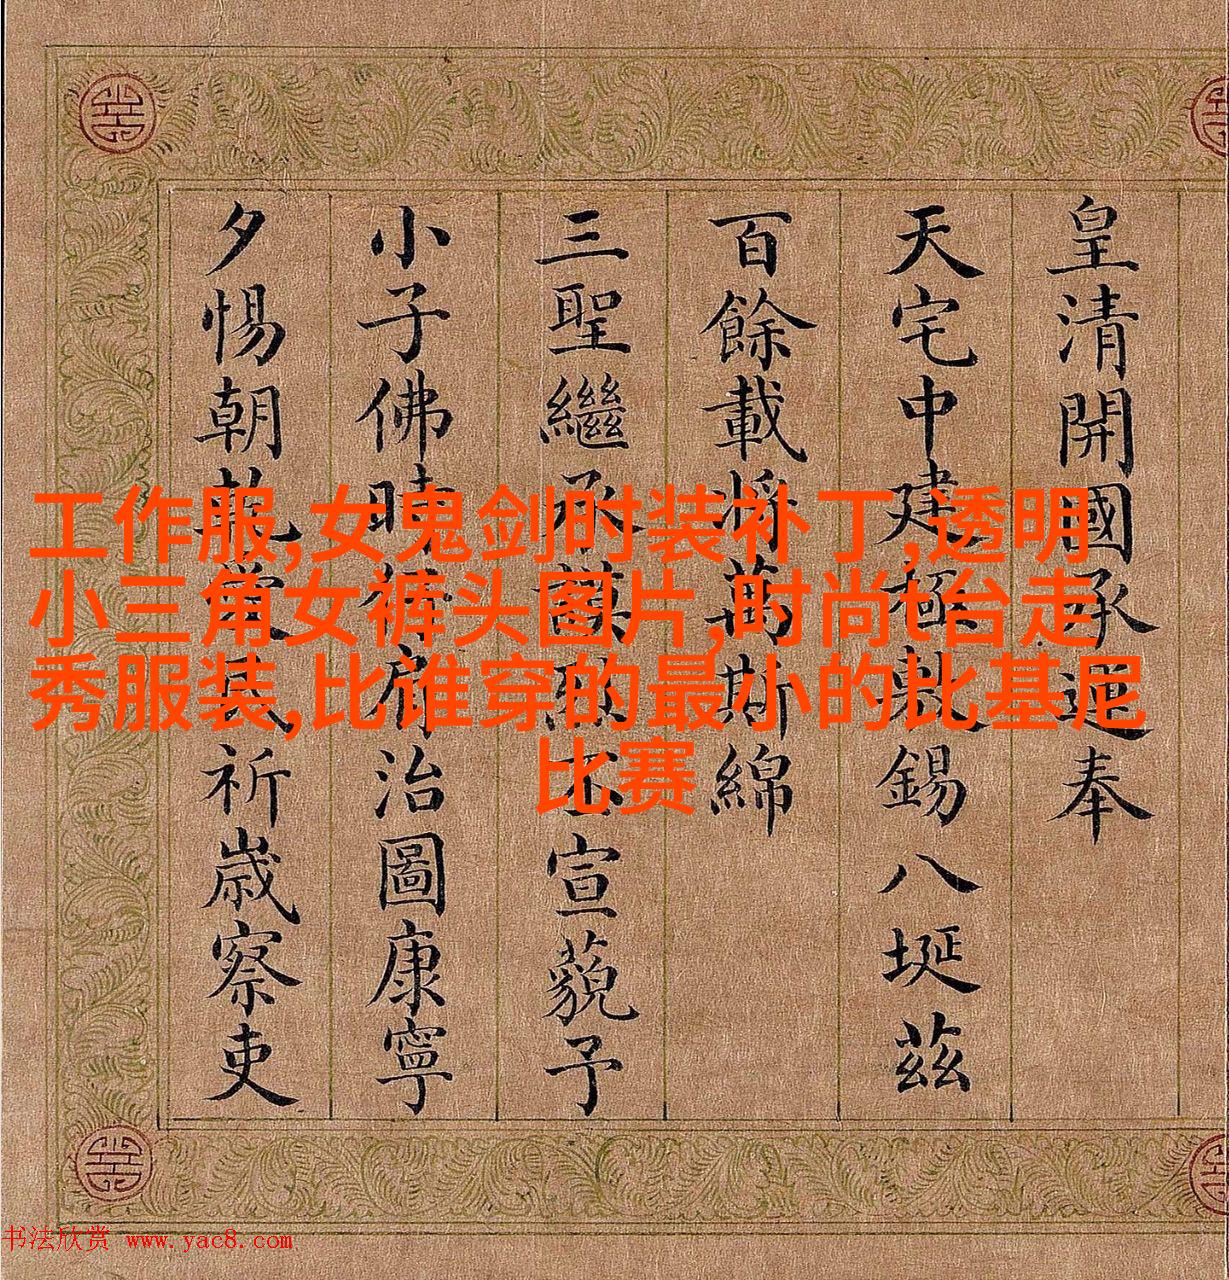 皇清開國承奉
天宅中建極敷錫八埏茲
百餘載將萬斯綿
三聖繼承謨烈丕宣藐予
小子佛時仔肩治圖康寧
夕惕朝乾民祈歲察吏
工作服,女鬼剑时装补丁,透明
小三角女裤头图片,时尚t台走
秀服装,比谁穿的最小的比基尼
比赛
书法欣赏 www.yac8.com